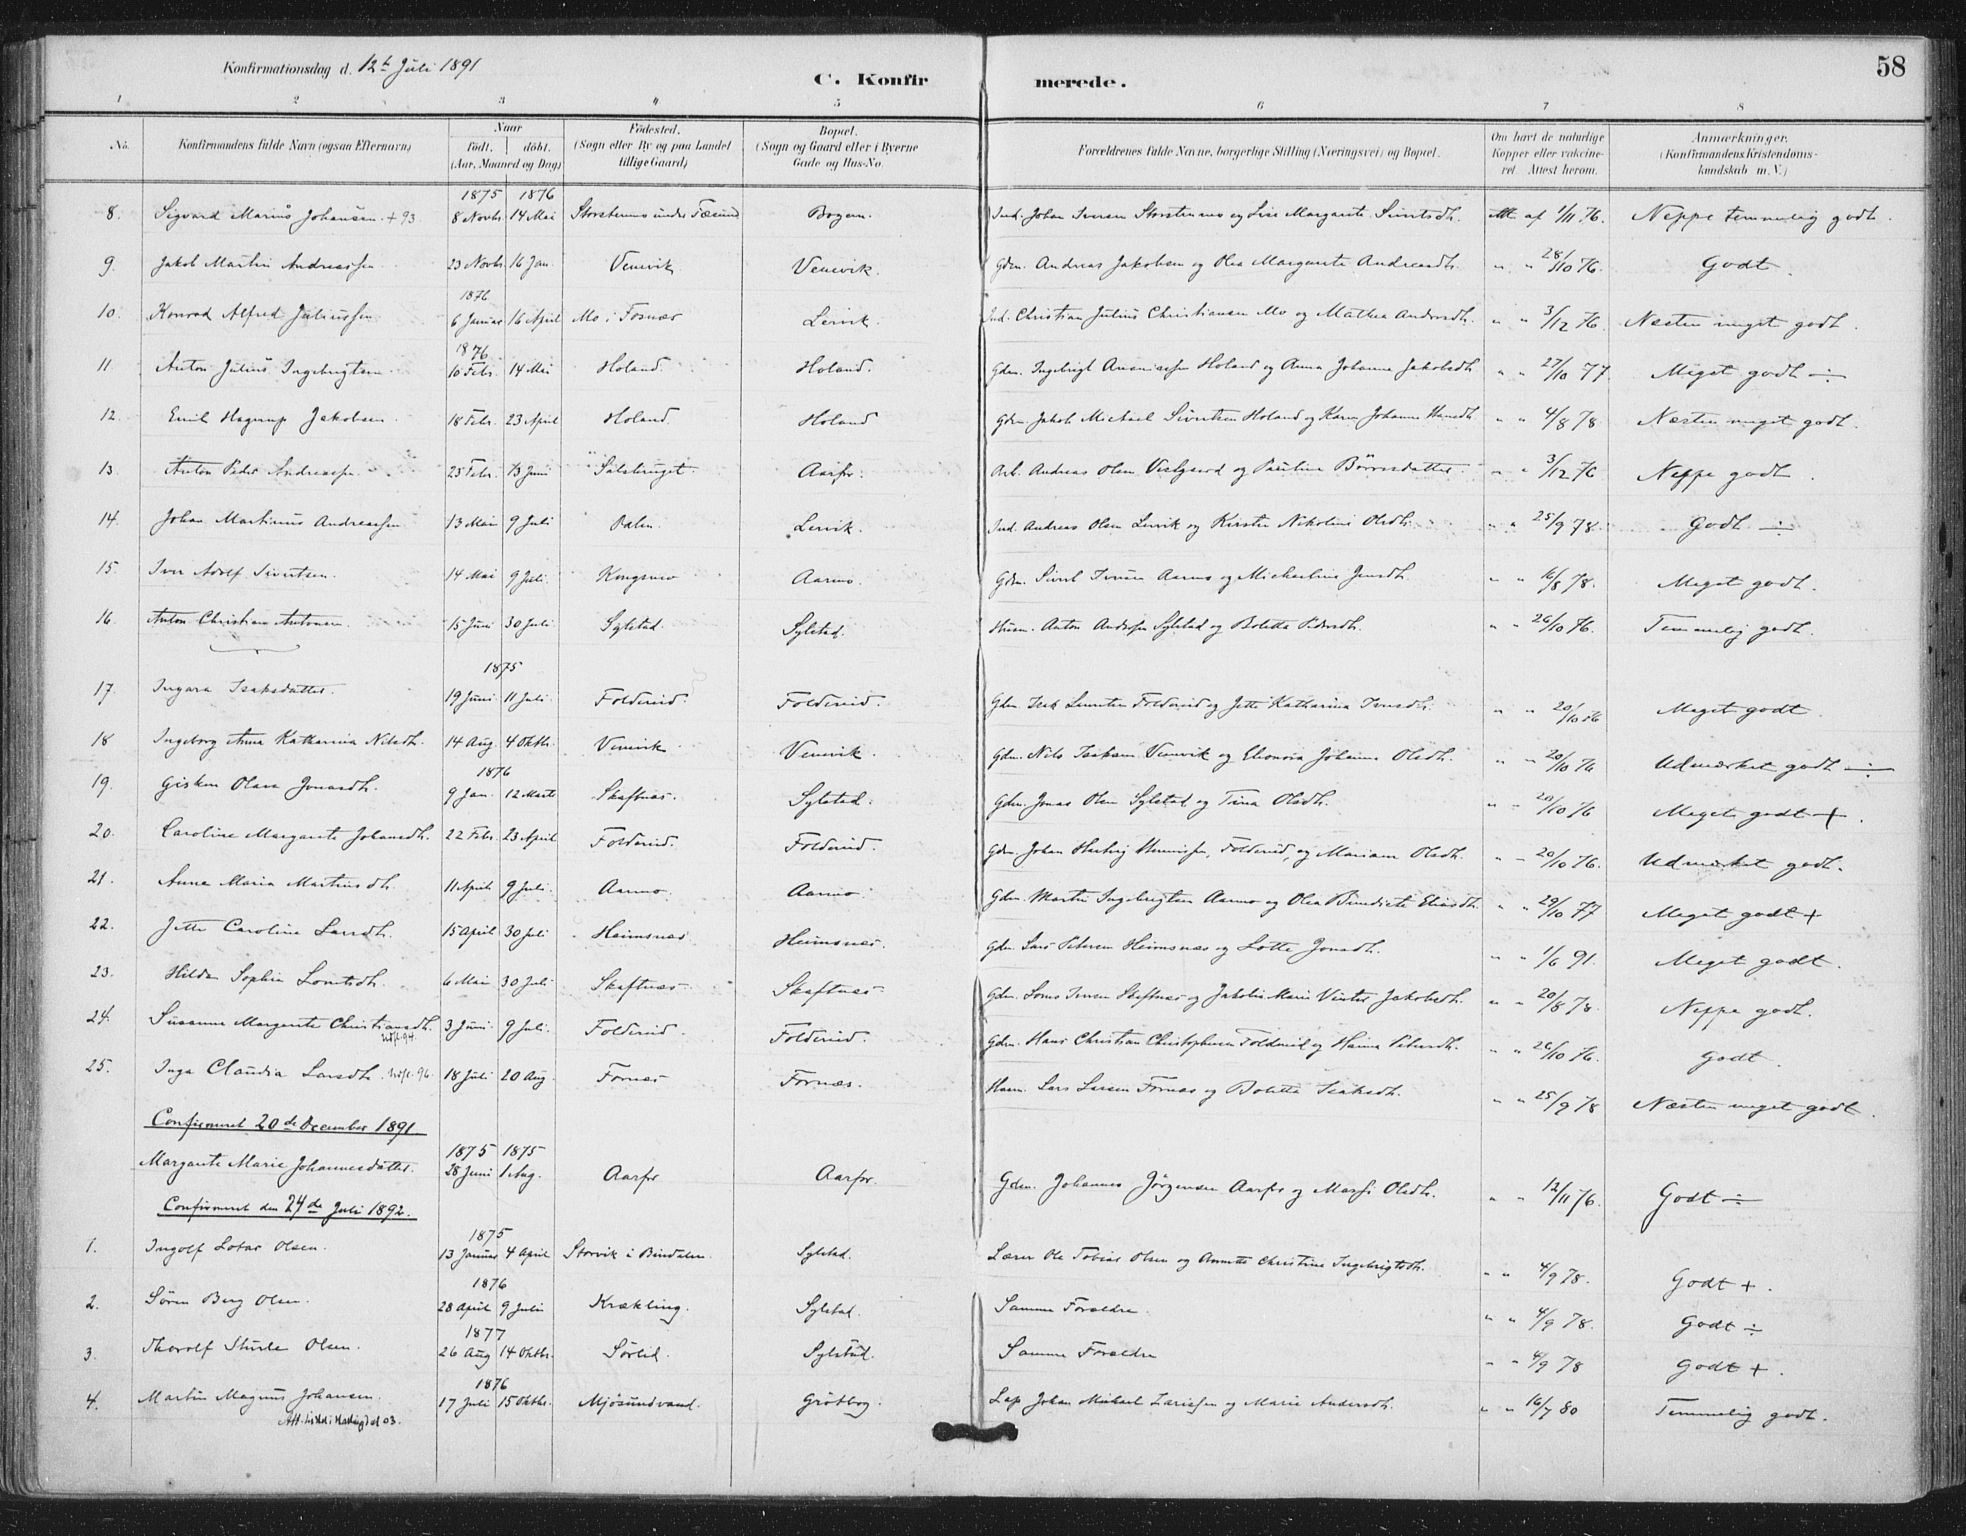 Konfirmationsdag d. 12t Juli 1891
C. Konfirmerede.
58
1 2 3 4 5 6 7 8
No. Konfirmandens fulde Navn (ogsaa Efternavn) Naar født. døbt. (Aar, Maaned og Dag) Fødested. (Sogn eller By og paa Landet tillige Gaard) Bopæl. (Sogn og Gaard eller i Byerne Gade og Hus-No. Forældrenes fulde Navne, borgerlige Stilling (Næringsvei) og Bopæl. Om havt de naturlige Kopper eller vakcineret Attest herom. Anmærkninger. (Konfirmandens Kristendomskundskab m. V.)
1875 1876
8. Sigvard Marius Johansen + 93 8 Novbr 14 Mai Storstenmo under Bogen. Ind. Johan Iversen Storstenmo og Lise Margarete Sivertsdtr. Att. af 1/11 76. Neppe temmelig godt.
9. Jakob Martin Andreassen 23 Novbr 16 Jan. Vennvik Vennvik. Gdm. Andreas Jakobsen og Olea Margarete Andreasdtr. " " 28/10 76. Godt.
1876
10. Konrad Alfred Juliussen 6 Januar 16 April Mo i Fosnæs Lervik. Ind. Christian Julius Christiansen Mo og Mathea Andersdtr. " " 3/12 76. Næsten meget godt.
1876
11. Anton Julius Ingebrigtsen 10 Febr. 14 Mai Holand. Holand. Gdm. Ingebrigt Ananiassen Holand og Anna Johanna Jakobsdtr " " 27/10 77 Meget godt ÷
12. Emil Hagerup Jakobsen. 18 Febr. 23 April Holand. Holand Gdm. Jakob Michael Sivertsen Holand og Karen Johanna Hansdtr. " " 4/8 78 Næsten meget godt.
13. Anton Peder Andreassen 25 Febr. 13 Juni Salsbruget. Aarfor. Arb. Andreas Olsen Vestgaard og Pauline Børresdatter. " " 3/12 76 Neppe godt.
14. Johan Martinus Andreassen 13 Mai 9 Juli Lervik. Ind. Andreas Olsen Lervik og Kirsten Nikoline Olsdtr. " " 25/9 78. Godt ÷
15. Iver Adolf Sivertsen. 14 Mai 9 Juli. Kongsmo Aarmo. Gdm. Sivert Iversen Aarmo og Michaeline Jensdtr. " " 16/8 78. Meget godt.
16. Anton Christian Antonsen. 15 Juni 30 Juli Sylstad. Sylstad. Husm. Anton Andersen Sylstad og Boletta Pedersdtr. " " 26/10 76. Temmelig godt.
1875
17. Ingara Isaksdatter. 19 Juni. 11 Juli. Foldereid. Foldereid. Gdm. Isak Foldereid og Jette Katharina Iversdtr. " " 20/10 76 Meget godt.
18 Ingeborg Anna Katharina Nilsdtr. 14 Aug. 4 Oktbr. Vennvik. Vennvik. Gdm. Nils Isaksen Vennvik og Elenora Johanna Olsdtr. " " 20/10 76 Udmærket godt ÷
1876
19. Gisken Olava Jonasdtr. 9 Jan. 12 Marts Skaftnæs. Sylstad. Gdm. Jonas Olsen Sylstad og Tina Olsdtr. " " 20/10 76 Meget godt +.
20. Caroline Margarete Johansdtr. 22 Febr. 23 April Foldereid. Foldereid. Gdm. Johan Hartvig Henningsen, Foldereid, og Mariane Olsdtr. " " 20/10 76. Udmærket godt.
21. Anna Maria Martinsdtr. 11 April 9 Juli. Aarmo. Aarmo. Gdm. Martin Ingebrigtsen Aarmo og Olea Bendicte Eliasdtr. " " 29/10 77 Meget godt +
22. Jette Caroline Larsdtr. 15 April 30 Juli Heimsnæs Heimsnæs. Gdm. Lars Petersen Heimsnæs og Lotte Jonsdtr. " " 1/6 91. Meget godt.
23. Hilda Sophie Lorntsdtr. 6 Mai 30 Juli Skaftnæs Skaftnæs Gdm. Lorns Iversen Skaftnæs og Jakobine Marie Vinter Jakobsdtr. " " 20/8 78. Neppe godt.
24. Susanna Margarete Christiansdtr. 3 Juni. 9 Juli. Foldereid. Foldereid. Gdm. Hans Christian Christophersen Foldereid og Hanna Petersdtr. " " 26/10 76. Godt.
25. Inga Claudia Larsdtr. 18 Juli 20 Aug. Fornæs Fornæs. Husm. Lars Larsen Fornæs og Boletta Isaksdtr. " " 25/9 78 Næsten meget godt.
Confirmeret 20de December 1891
1875 1875
Margarete Marie Johannesdatter. 28 Juni 1 Aug. Aarfor Aarfor. Gdm. Johannes Jørgensen Aarfor og Olsdtr. " " 12/11 76. Godt ÷
Confirmeret den 24de Juli 1892.
1875
1. Ingolf Lotar Olsen. 13 Januar 4 April Storvik i Bindalen. Sylstad. Lærer Ole Tobias Olsen og Annette Christine Ingebrigtsdtr. " " 4/9 78. Godt +.
1876
2. Sören Berg Olsen. 28 April 9 Juli Krækling. Sylstad. Samme Forældre. " " 4/9 78. Godt ÷
1877
3. Thorolf Sturla Olsen. 26 Aug 14 Oktbr. Sörlid. Sylstad. Samme Forældre " " 4/9 78 Godt +
1876
4. Martin Magnus Johansen. 17 Juli 15 Oktbr. Mjösundvand. Grötbog. Lap Johan Mikael Zariassen og Marie Andersdtr. " " 16/7 80 Temmelig godt.
03.